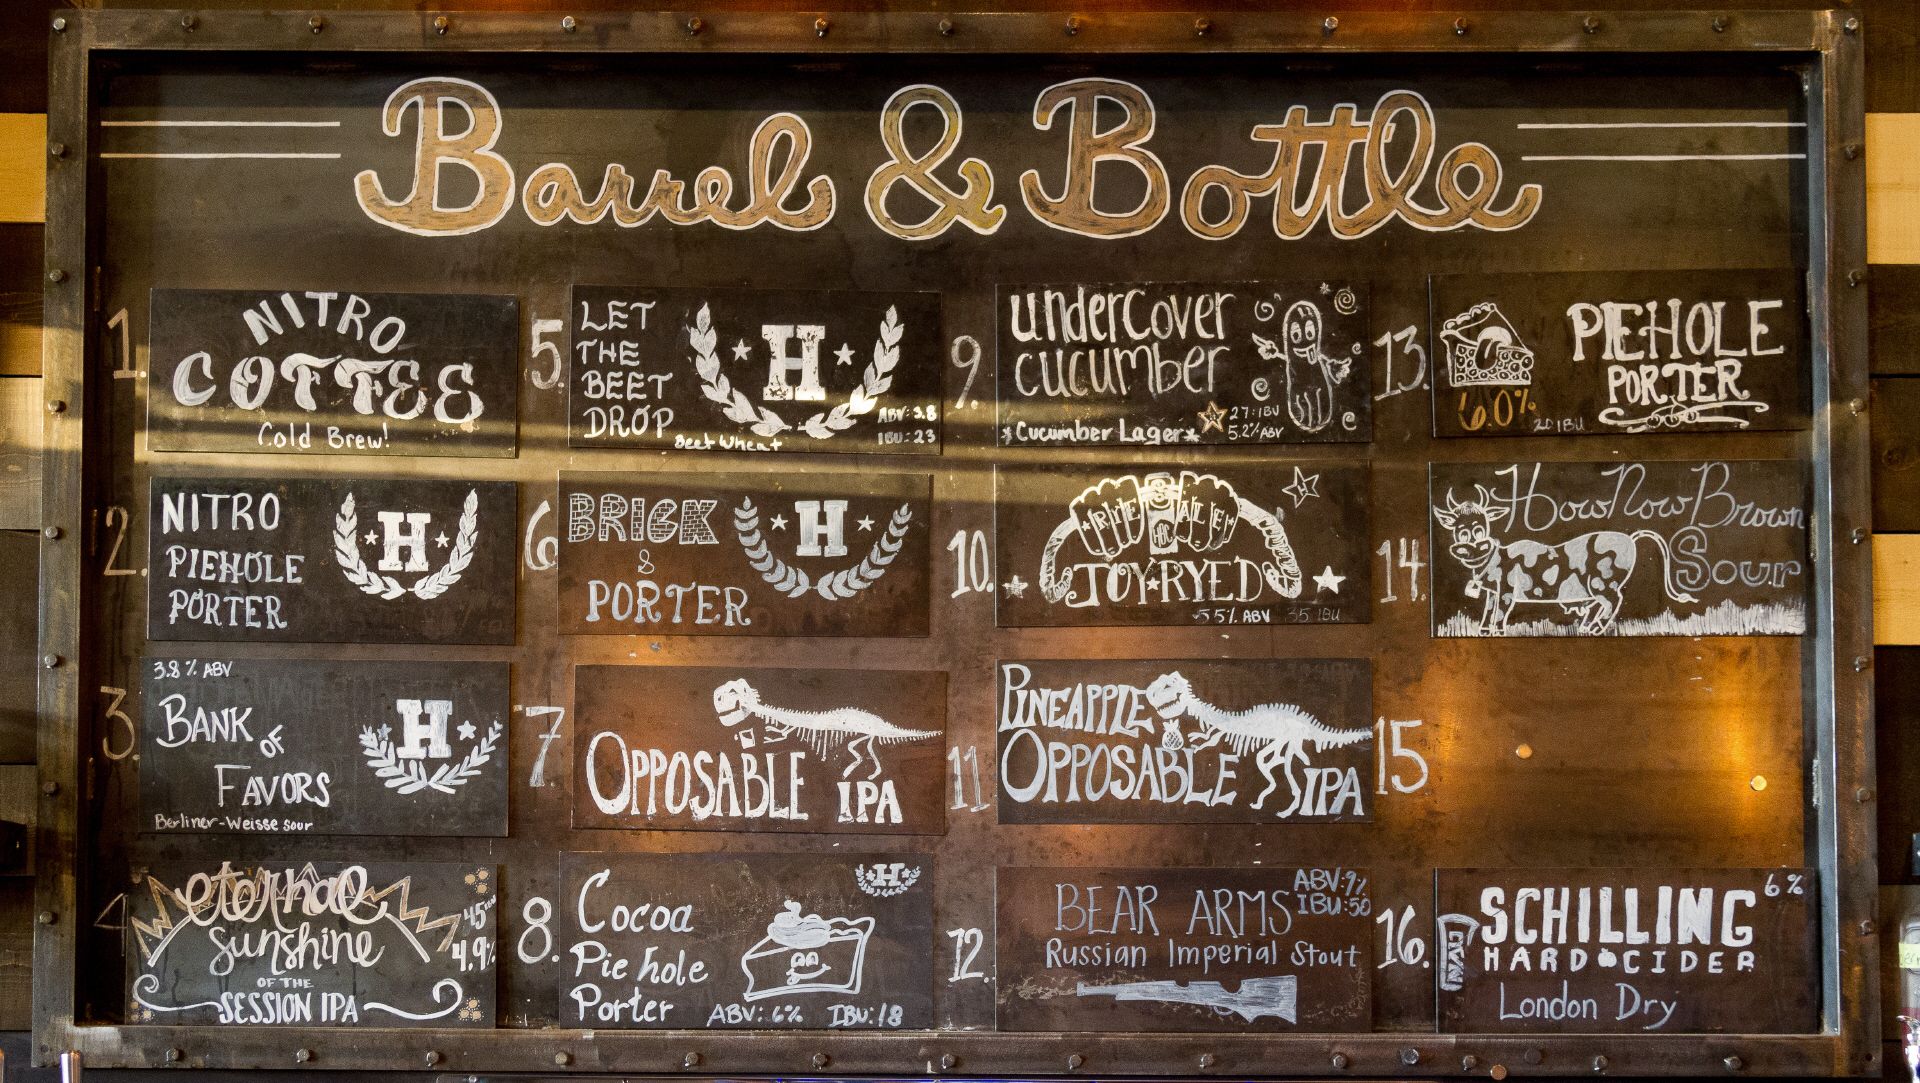 Barrel & Bottle
1.
NITRO
COFFEE
Cold Brew!
2.
NITRO
PIEHOLE
PORTER
H
3.
3.8% ABV
BANK
OF
FAVORS
Berliner-Weisse sour
H
4
eternal
sunshine
OF THE
SESSION IPA
45
4.9%
5.
LET
THE
BEET
DROP
Beet Wheat
H
ABV: 3.8
IBU: 23
6
BRICK
&
PORTER
H
7.
OPPOSABLE IPA
8.
Cocoa
Pie hole
Porter
H
ABV: 6% IBU: 18
9.
undercover
cucumber
*Cucumber Lager*
27: IBU
5.2% ABV
10.
RYE ALE
HBC
TOY*RYED
5.5% ABV 35 IBU
11
PINEAPPLE
OPPOSABLE IPA
12.
BEAR ARMS
ABV: 9%
IBU: 50
Russian Imperial Stout
13.
PIEHOLE
PORTER
6.0%
20 IBU
14.
How Now Brown
Sour
15
16.
SCHILLING
6%
HARD CIDER
London Dry